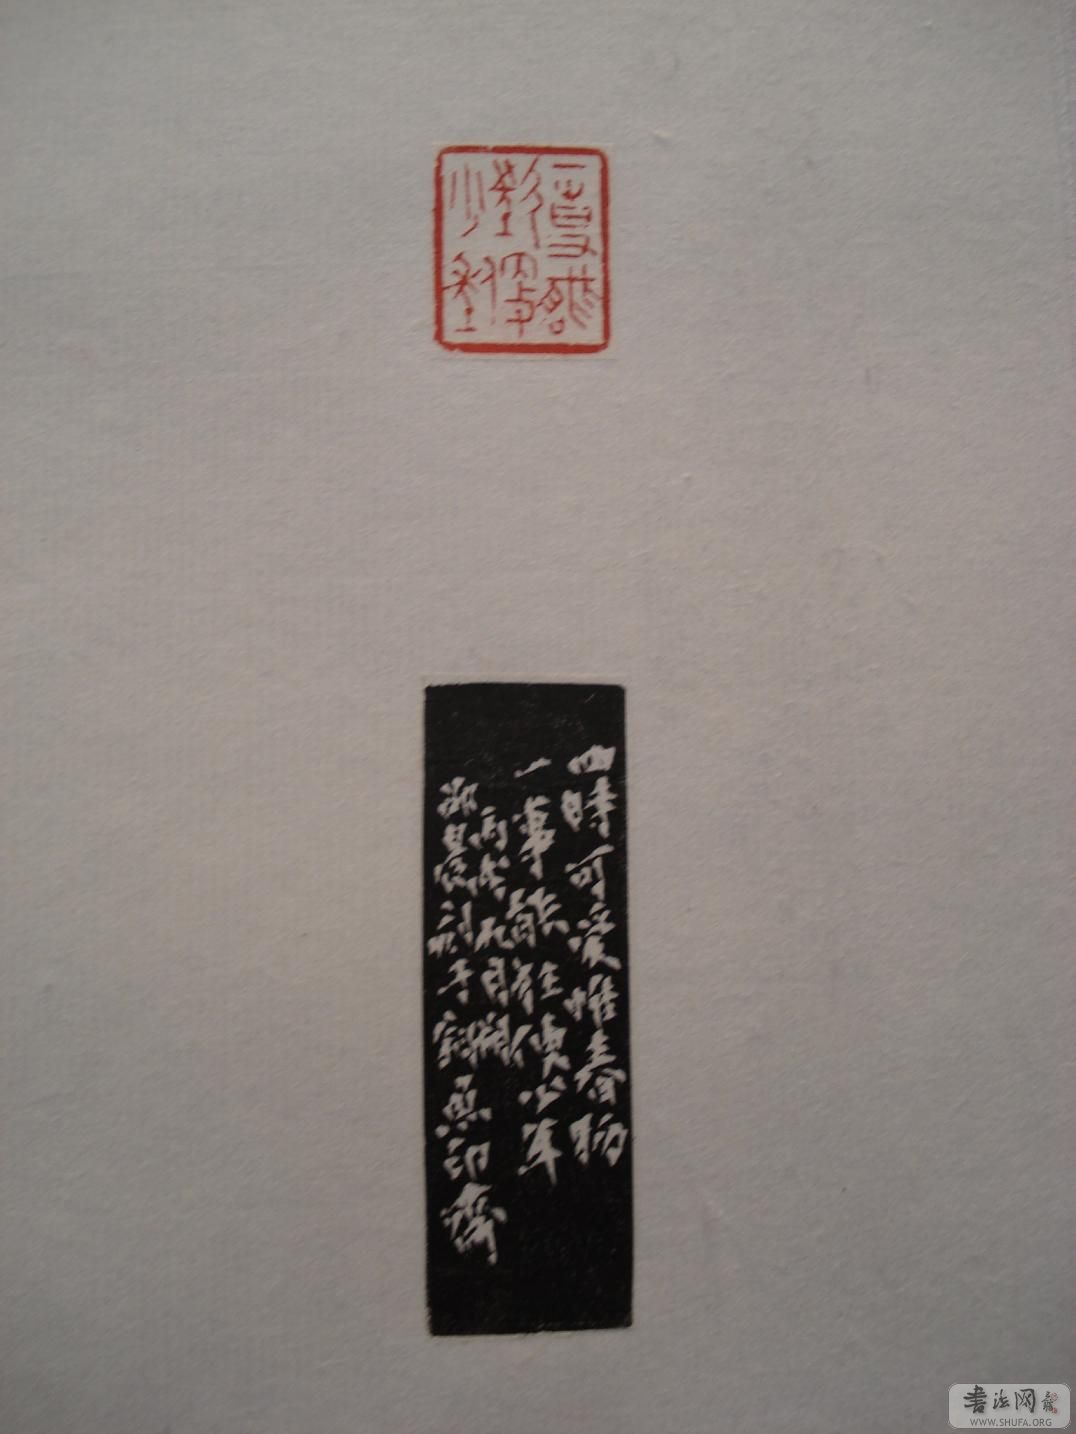 一事能
狂便
少年
四時可愛惟春物
一事能狂便少年
丙戌九月朔
刻于魚印齋
書法网
WWW.SHUFA.ORG